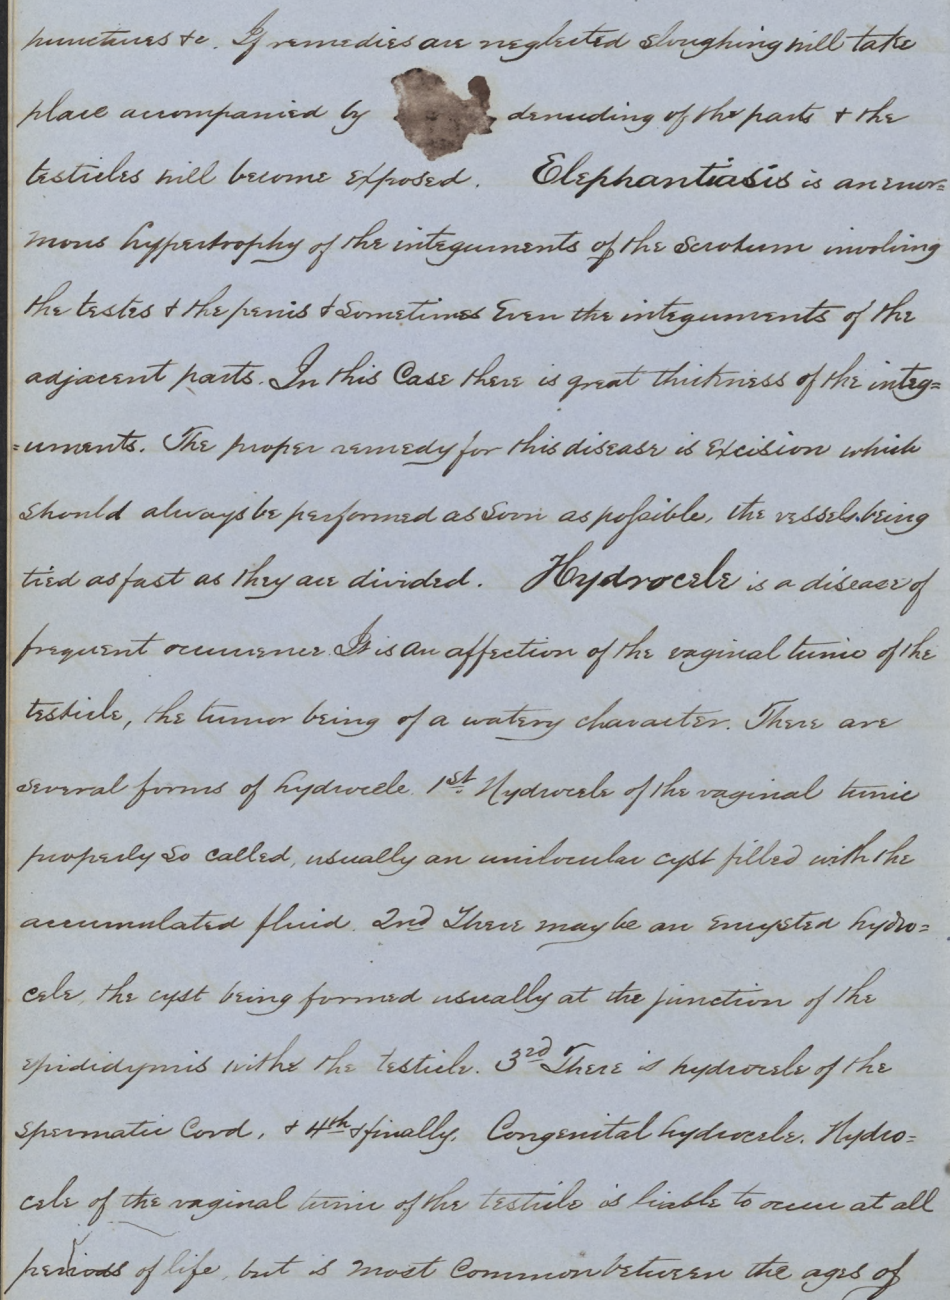 punctures &c. If remedies are neglected sloughing will take
place accompanied by denuding of the parts & the
testicles will become exposed. Elephantiasis is an enor=
mous hypertrophy of the integuments of the Scrotum involving
the testes & the penis & Sometimes Even the integuments of the
adjacent parts. In this Case there is great thickness of the integ=
=uments. The proper remedy for this disease is Excision which
should always be performed as Soon as possible, the vessels being
tied as fast as they are divided. Hydrocele is a disease of
frequent occurrence. It is an affection of the vaginal tunic of the
testicle, the tumor being of a watery character. There are
several forms of hydrocele. 1st. Hydrocele of the vaginal tunic
properly So called, usually an unilocular cyst filled with the
accumulated fluid. 2nd There may be an encysted hydro=
cele, the cyst being formed usually at the junction of the
epididymis with the testicle. 3rd There is hydrocele of the
spermatic Cord, & 4th & finally, Congenital hydrocele. Hydro=
cele of the vaginal tunic of the testicle is liable to occur at all
periods of life, but is most Common between the ages of